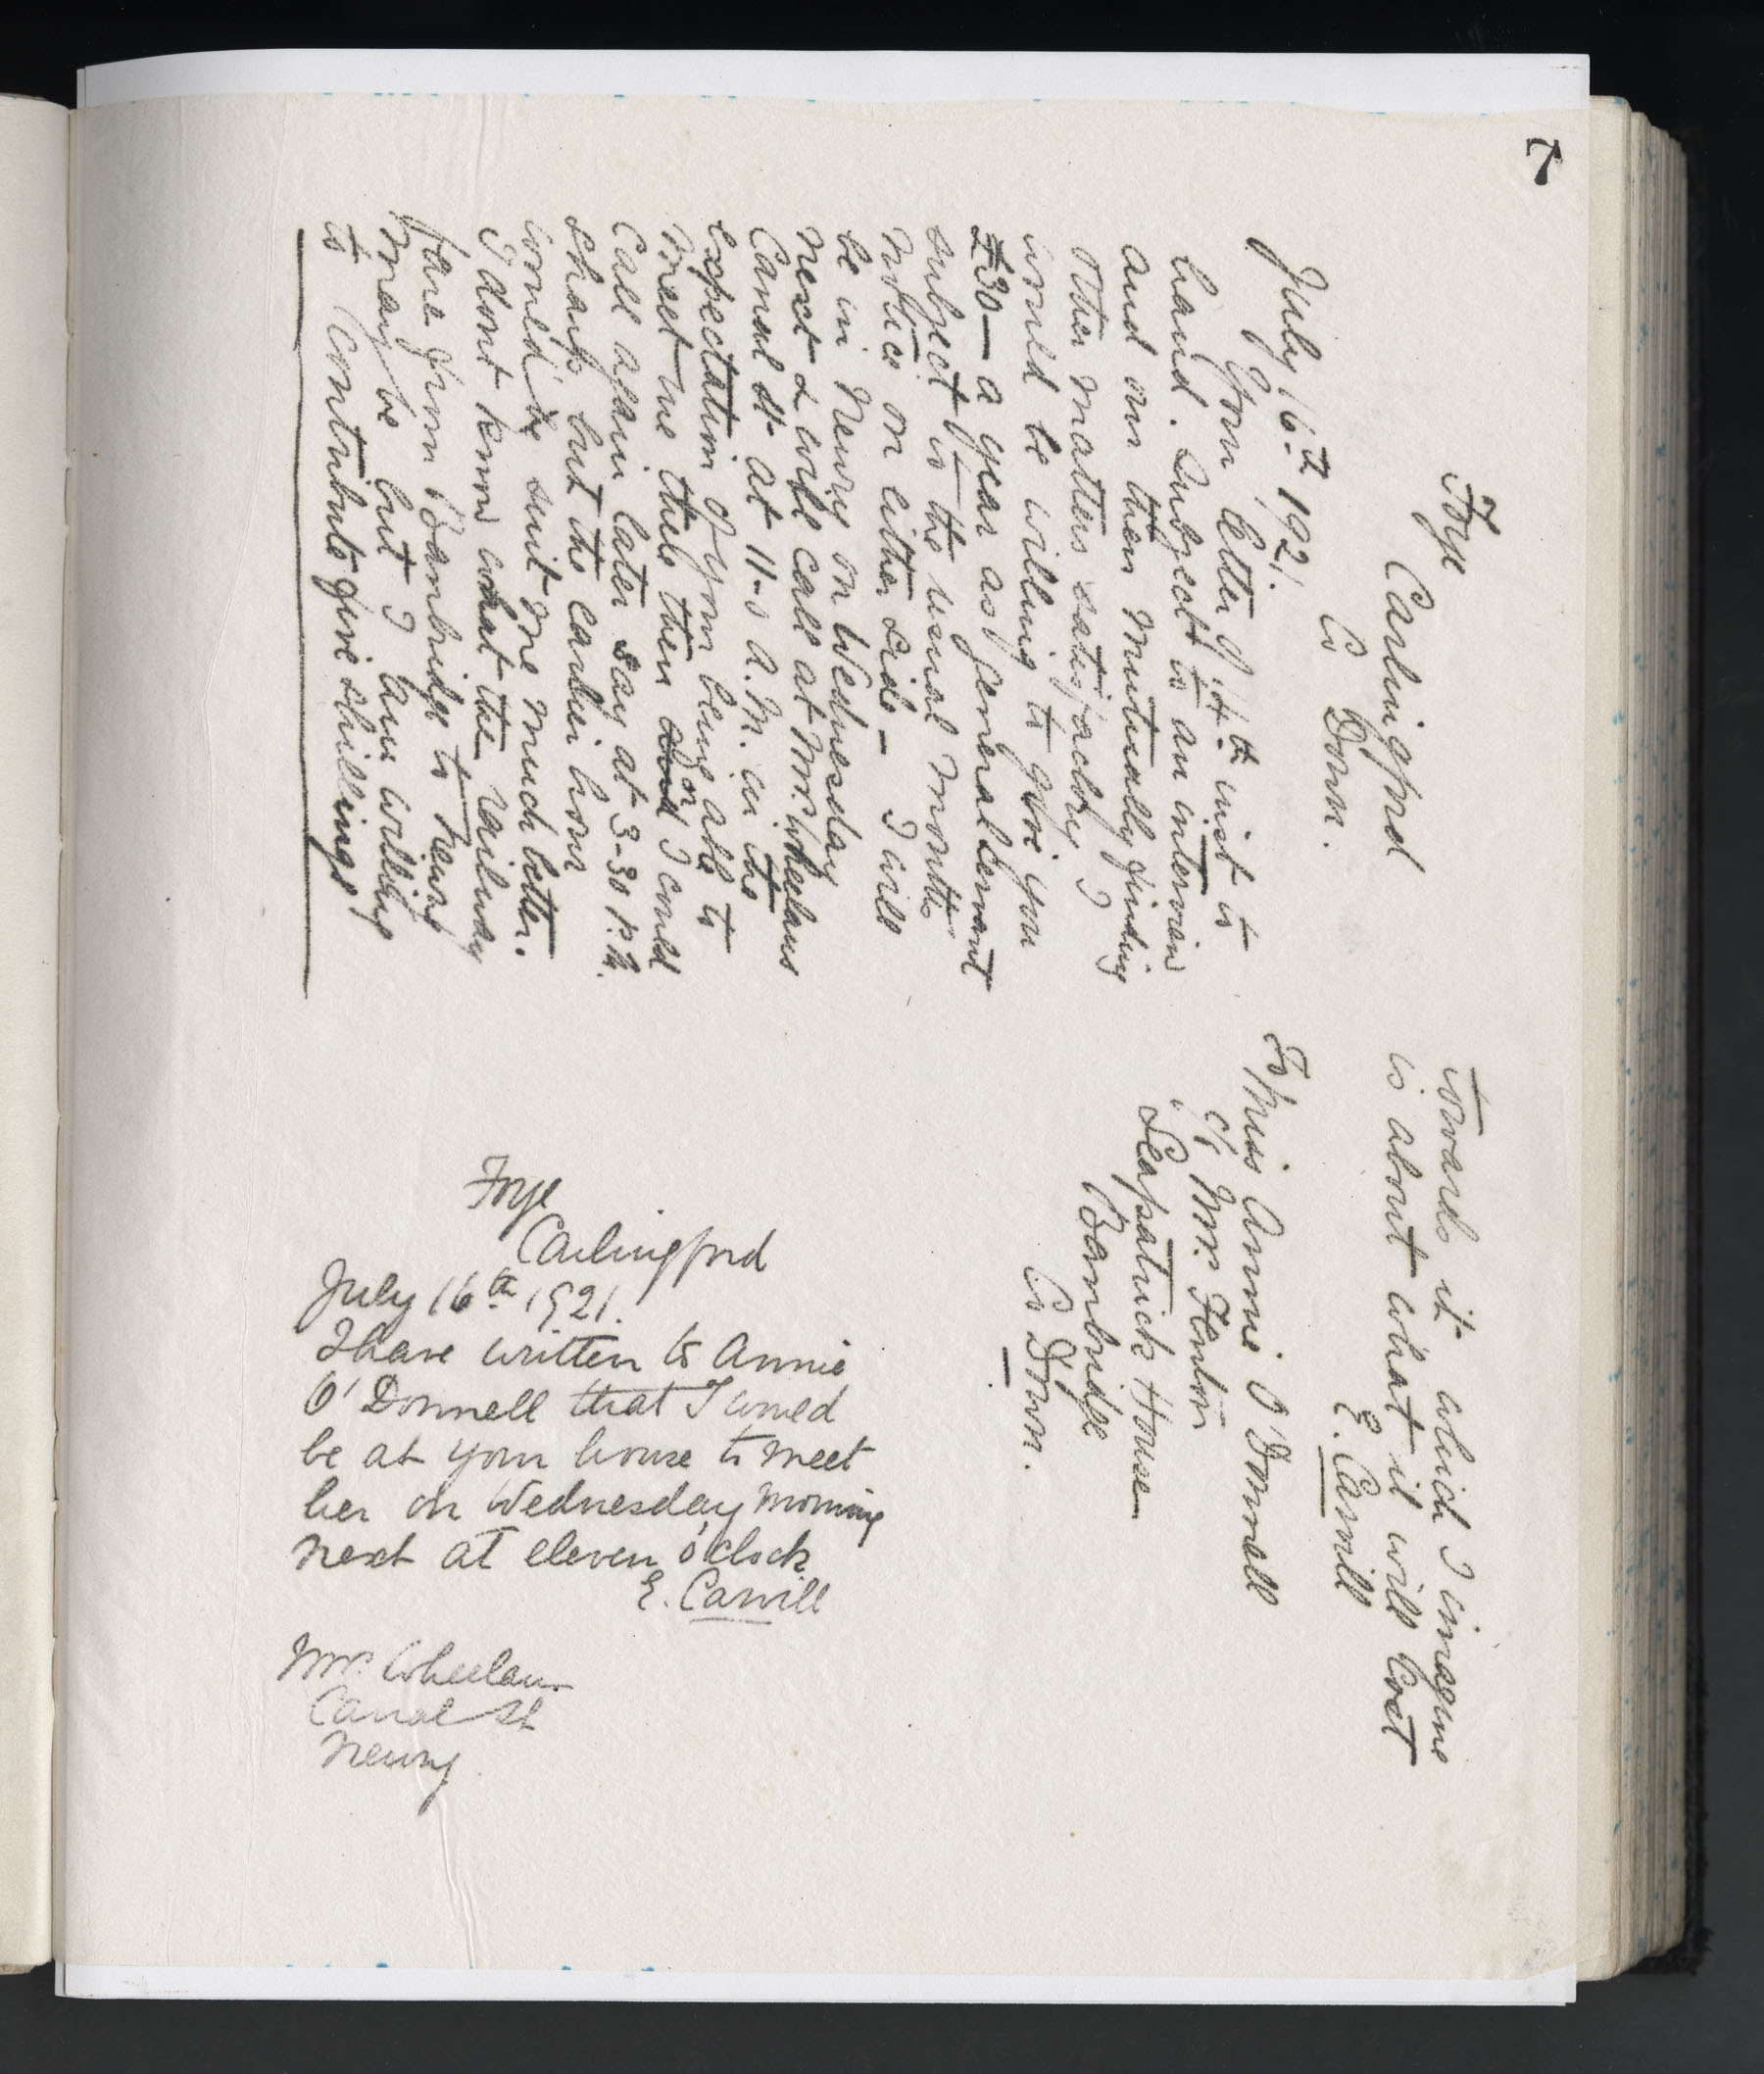 7
Foye
Carlingford
Co Down.
July 16th 1921.
Your letter of 14th inst is to
hand. Subject to an interview
and our then mutually finding
other matters satisfactory I
would be willing to give you
£30— a year as general servant
subject to the usual months
notice on either side — I will
be in Newry on Wednesday
next & will call at Mrs. Wheelans
Canal St at 11-0 A.M. in the
expectation of your being able to
meet me there then or I could
call again later say at 3-30 P.M.
sharp but the earlier hour
would be suit me much better.
I dont know what the railway
fare from Banbridge to Newry
may be but I am willing
to contribute five shillings
towards it which I imagine
is about what it will cost
E. Carvill
To Miss Annie O'Donnell
c/o Mrs. Fenton
Seapatrick House
Banbridge
Co Down.
Foye
Carlingford
July 16th 1921.
I have written to Annie
O'Donnell that I would
be at your house to meet
her on Wednesday morning
next at eleven o'clock
E. Carvill
Mrs. Wheelan
Canal St
Newry